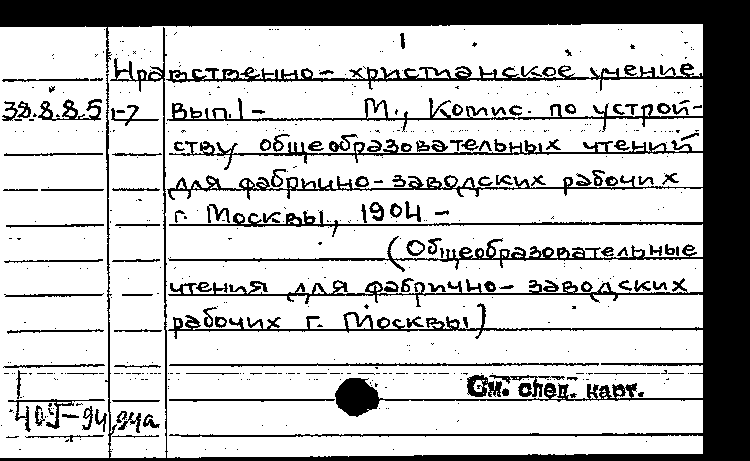 1
Нравственно-христианское учение.
38.8.8.5 1-7 Вып.1- М., Комис. по устрой-
ству общеобразовательных чтений
для фабрично-заводских рабочих
г. Москвы, 1904 -
(Общеобразовательные
чтения для фабрично-заводских
рабочих г. Москвы)
См. след. карт.
409-94,94а